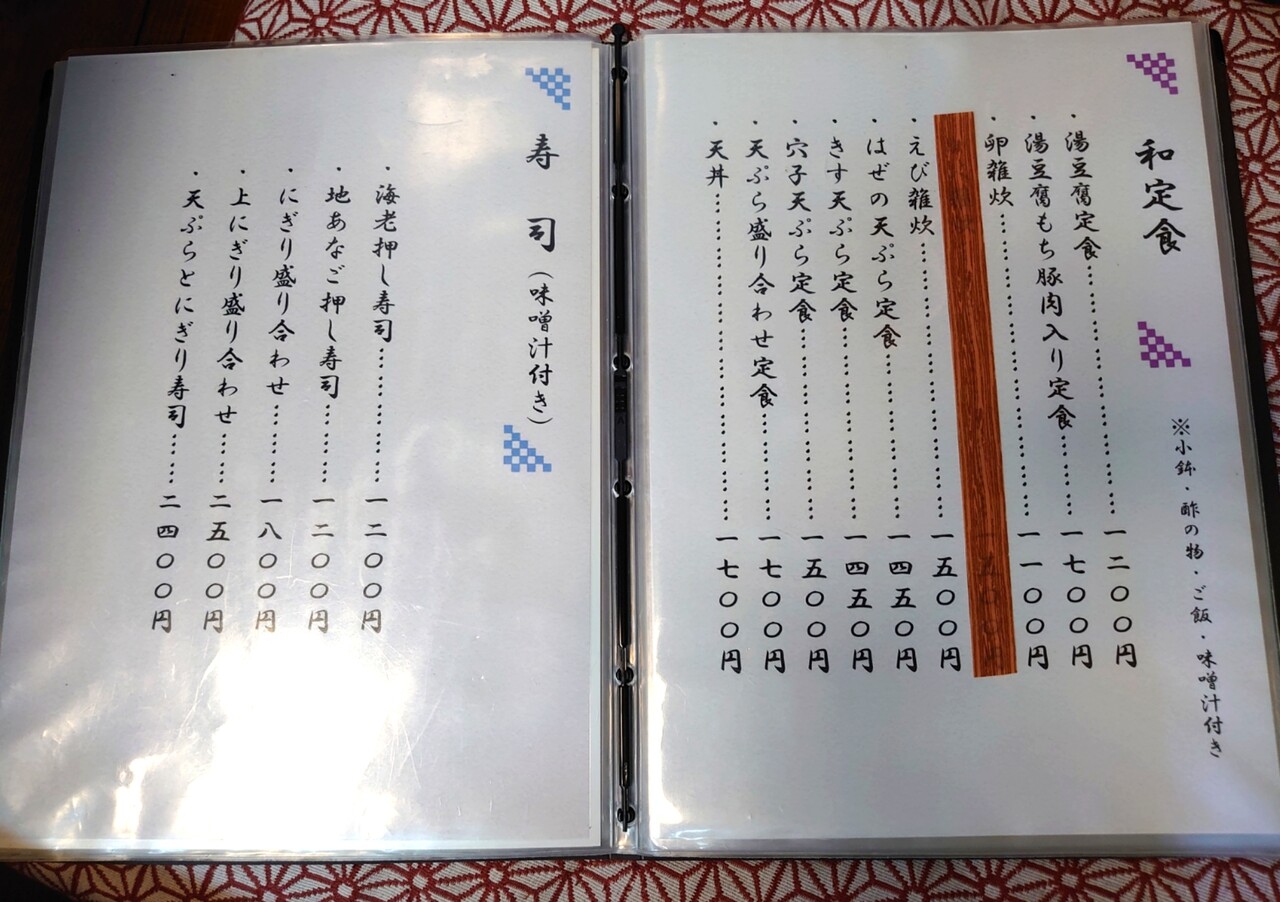 和定食
※小鉢・酢の物・ご飯・味噌汁付き
・湯豆腐定食……………………一二〇〇円
・湯豆腐もち豚肉入り定食…………一七〇〇円
・卵雑炊……………………一一〇〇円
・えび雑炊……………………一五〇〇円
・はぜの天ぷら定食……………一四五〇円
・きす天ぷら定食……………一四五〇円
・穴子天ぷら定食……………一五〇〇円
・天ぷら盛り合わせ定食…………一七〇〇円
・天丼……………………一七〇〇円
寿司(味噌汁付き)
・海老押し寿司……………一二〇〇円
・地あなご押し寿司………一二〇〇円
・にぎり盛り合わせ………一八〇〇円
・上にぎり盛り合わせ……二五〇〇円
・天ぷらとにぎり寿司……二四〇〇円